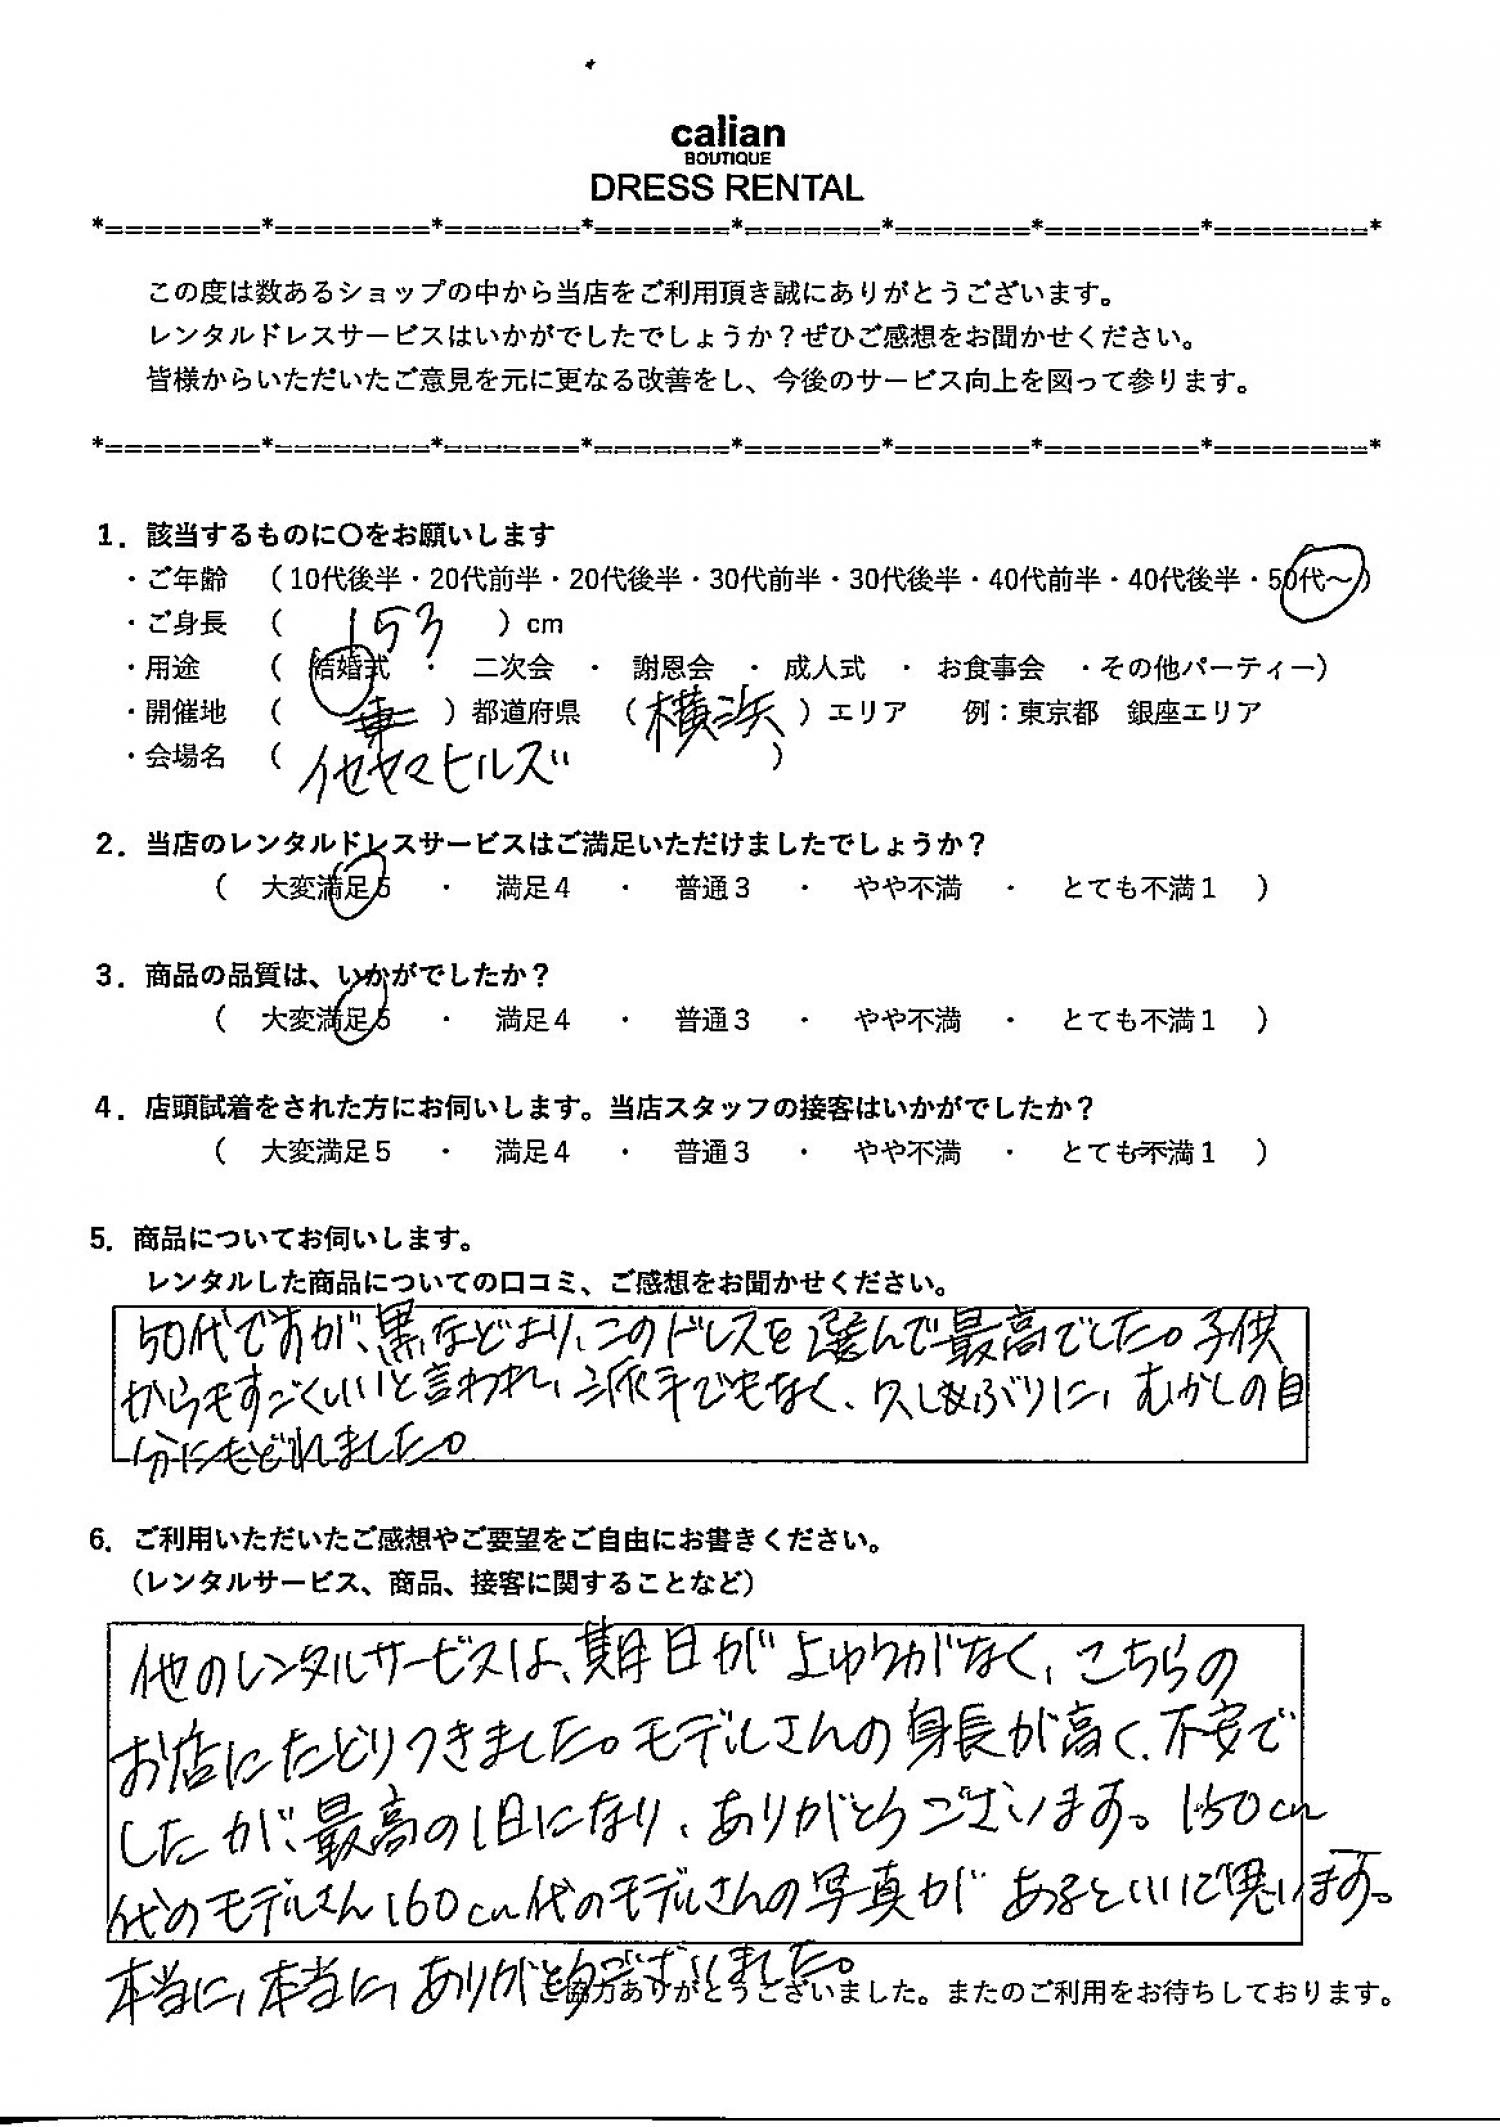 calian
BOUTIQUE
DRESS RENTAL
*========*========*=======*=======*=======*=======*========*========*
この度は数あるショップの中から当店をご利用頂き誠にありがとうございます。
レンタルドレスサービスはいかがでしたでしょうか？ぜひご感想をお聞かせください。
皆様からいただいたご意見を元に更なる改善をし、今後のサービス向上を図って参ります。
*========*========*=======*=======*=======*=======*========*========*
1．該当するものに〇をお願いします
・ご年齢 （10代後半・20代前半・20代後半・30代前半・30代後半・40代前半・40代後半・50代～）
・ご身長 （ 153 ）cm
・用途 （ 結婚式 ・ 二次会 ・ 謝恩会 ・ 成人式 ・ お食事会 ・その他パーティー）
・開催地 （ ）都道府県 （横浜）エリア 例：東京都 銀座エリア
・会場名 （ イセヤマヒルズ ）
2．当店のレンタルドレスサービスはご満足いただけましたでしょうか？
（ 大変満足5 ・ 満足4 ・ 普通3 ・ やや不満 ・ とても不満1 ）
3．商品の品質は、いかがでしたか？
（ 大変満足5 ・ 満足4 ・ 普通3 ・ やや不満 ・ とても不満1 ）
4．店頭試着をされた方にお伺いします。当店スタッフの接客はいかがでしたか？
（ 大変満足5 ・ 満足4 ・ 普通3 ・ やや不満 ・ とても不満1 ）
5．商品についてお伺いします。
レンタルした商品についての口コミ、ご感想をお聞かせください。
50代ですが、黒などより、このドレスを選んで最高でした。子供
からもすごくいいと言われ、派手でもなく、久しぶりに、むかしの自
分にもどれました。
6．ご利用いただいたご感想やご要望をご自由にお書きください。
（レンタルサービス、商品、接客に関することなど）
他のレンタルサービスは、期日がよゆうがなく、こちらの
お店にたどりつきました。モデルさんの身長が高く、不安で
したが、最高の1日になり、ありがとうございます。150cm
代のモデルさん160cm代のモデルさんの写真があるといいと思います。
本当に、本当に、ありがとうございました。
ご協力ありがとうございました。またのご利用をお待ちしております。